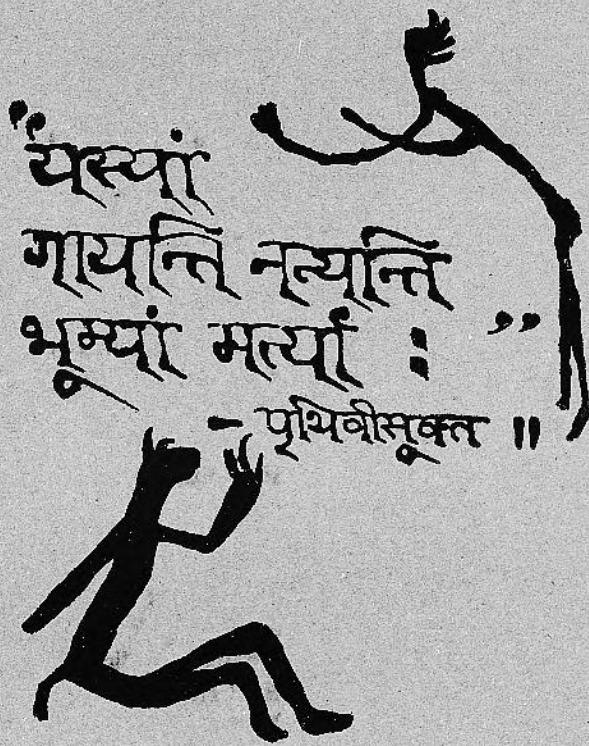 "यस्यां
गायन्ति नृत्यन्ति
भूम्यां मर्त्या : ”
- पृथिवीसूक्त ॥